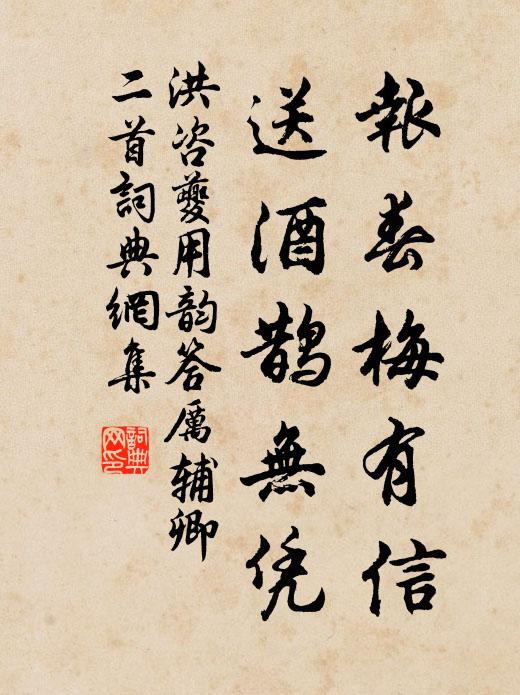 報春梅有信
送酒鵲無凭
洪咨夔用韵答厲輔卿
二首詞典網集
詞典
网印